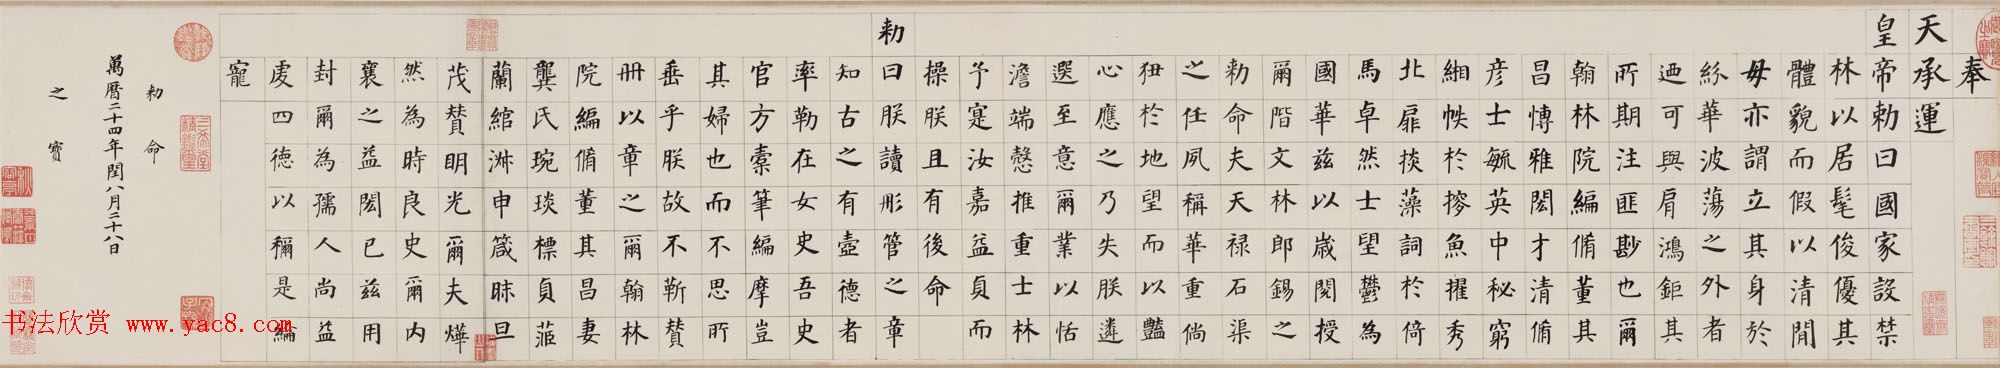 奉
天承運
皇帝勅曰國家設禁
林以居髦俊優其
體貌而假以清閒
毋亦謂立其身於
紛華波蕩之外者
迺可與肩鴻鉅其
所期注匪尠也爾
翰林院編脩董其
昌愽雅閎才清脩
彦士毓英中秘窮
緗帙於魚擢秀
北扉掞藻詞於倚
馬卓然士望鬱為
國華兹以歲閱授
爾階文林郎錫之
勅命夫天禄石渠
之任夙稱華重倘
狃於地望而以豔
心應之乃失朕遴
選至意爾業以恬
澹端慤推重士林
予寔汝嘉益貞而
操朕且有後命
勅曰朕讀彤管之章
知古之有壼德者
率勒在女史吾史
官方橐筆編摩豈
其婦也而不思所
垂乎朕故不靳賛
冊以章之爾翰林
院編脩董其昌妻
龔氏琬琰標貞茝
蘭綰淋申箴昧旦
茂賛明光爾夫燁
然為時良史爾内
襄之益閎已兹用
封爾為孺人尚益
處四德以稱是綸
寵
勅命
萬曆二十四年閏八月二十八日
之寳
书法欣赏 www.yac8.com